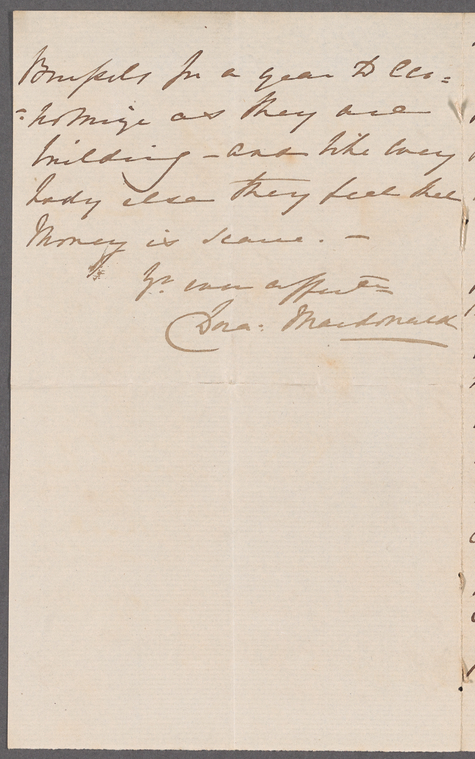 Brussels for a year to Eco=
=nomize as they are
building – and like every
body else they feel that
Money is scarce. –
Yr ever affecte
Dora. Macdonald